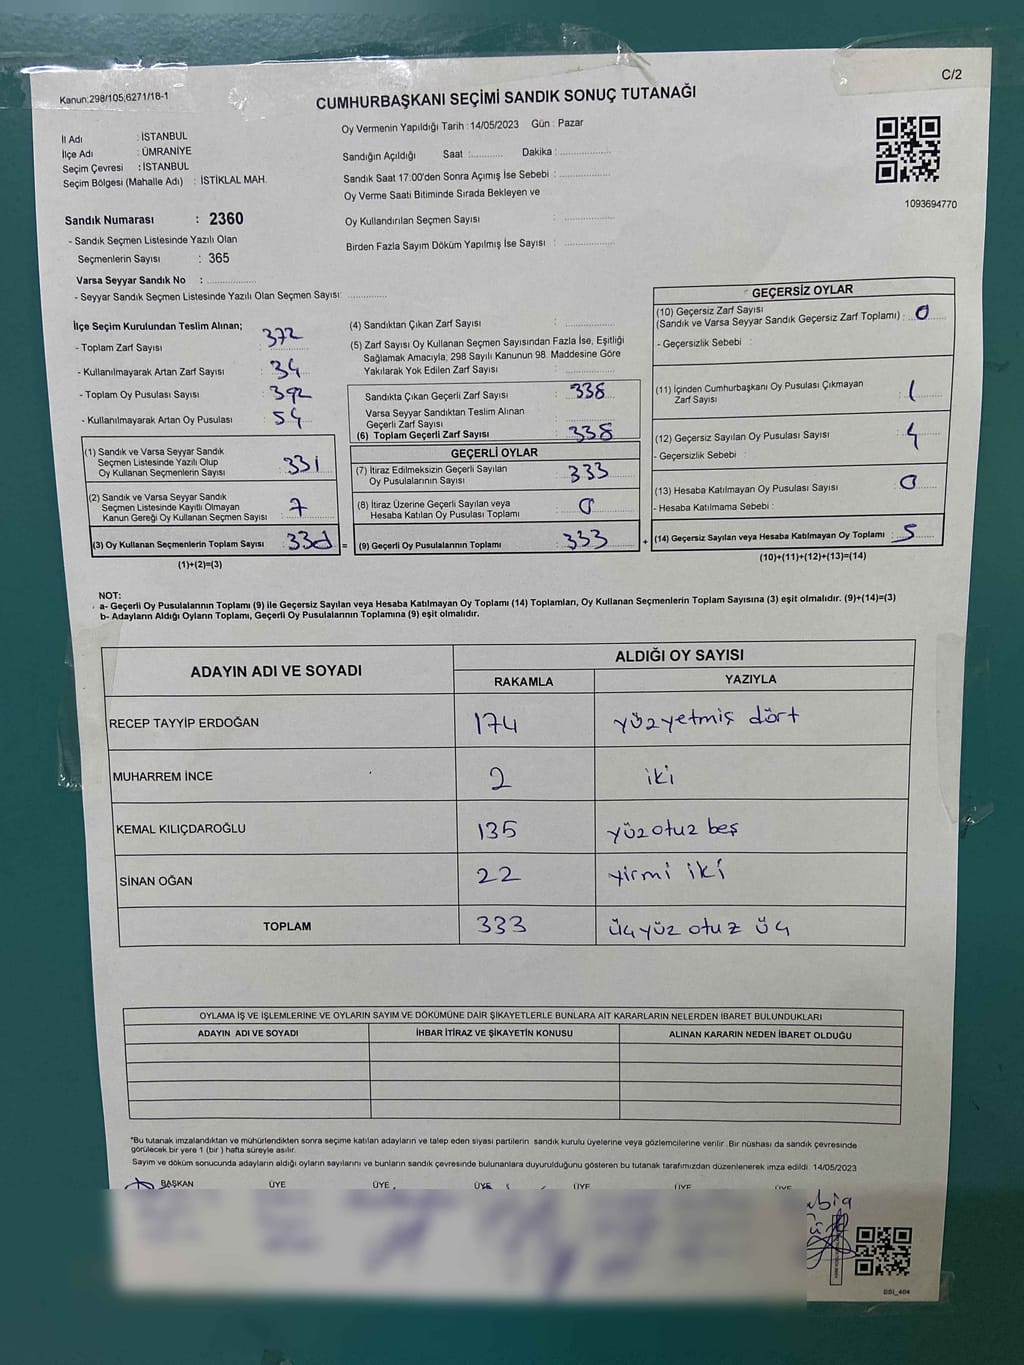 C/2
Kanun;298/105;6271/18-1
CUMHURBAŞKANI SEÇİMİ SANDIK SONUÇ TUTANAĞI
İl Adı : İSTANBUL
İlçe Adı : ÜMRANİYE
Seçim Çevresi : İSTANBUL
Seçim Bölgesi (Mahalle Adı) : İSTİKLAL MAH.
Sandık Numarası : 2360
- Sandık Seçmen Listesinde Yazılı Olan
Seçmenlerin Sayısı : 365
Varsa Seyyar Sandık No : ..............
- Seyyar Sandık Seçmen Listesinde Yazılı Olan Seçmen Sayısı: ............
Oy Vermenin Yapıldığı Tarih : 14/05/2023 Gün : Pazar
Sandığın Açıldığı Saat :........... Dakika : ................
Sandık Saat 17:00'den Sonra Açımış İse Sebebi : ................
Oy Verme Saati Bitiminde Sırada Bekleyen ve
Oy Kullandırılan Seçmen Sayısı : ................
Birden Fazla Sayım Döküm Yapılmış İse Sayısı : ................
1093694770
İlçe Seçim Kurulundan Teslim Alınan;
- Toplam Zarf Sayısı : 372
- Kullanılmayarak Artan Zarf Sayısı : 34
- Toplam Oy Pusulası Sayısı : 392
- Kullanılmayarak Artan Oy Pusulası : 54
(1) Sandık ve Varsa Seyyar Sandık
Seçmen Listesinde Yazılı Olup
Oy Kullanan Seçmenlerin Sayısı : 331
(2) Sandık ve Varsa Seyyar Sandık
Seçmen Listesinde Kayıtlı Olmayan
Kanun Gereği Oy Kullanan Seçmen Sayısı : 7
(3) Oy Kullanan Seçmenlerin Toplam Sayısı : 338 =
(1)+(2)=(3)
(4) Sandıktan Çıkan Zarf Sayısı : ..............
(5) Zarf Sayısı Oy Kullanan Seçmen Sayısından Fazla İse, Eşitliği
Sağlamak Amacıyla; 298 Sayılı Kanunun 98. Maddesine Göre
Yakılarak Yok Edilen Zarf Sayısı : ..............
Sandıkta Çıkan Geçerli Zarf Sayısı : 338
Varsa Seyyar Sandıktan Teslim Alınan
Geçerli Zarf Sayısı :
(6) Toplam Geçerli Zarf Sayısı : 338
GEÇERLİ OYLAR
(7) İtiraz Edilmeksizin Geçerli Sayılan
Oy Pusulalarının Sayısı : 333
(8) İtiraz Üzerine Geçerli Sayılan veya
Hesaba Katılan Oy Pusulası Toplamı : 0
(9) Geçerli Oy Pusulalarının Toplamı : 333 +
GEÇERSİZ OYLAR
(10) Geçersiz Zarf Sayısı
(Sandık ve Varsa Seyyar Sandık Geçersiz Zarf Toplamı) : 0
- Geçersizlik Sebebi :
(11) İçinden Cumhurbaşkanı Oy Pusulası Çıkmayan
Zarf Sayısı : 1
(12) Geçersiz Sayılan Oy Pusulası Sayısı : 4
- Geçersizlik Sebebi :
(13) Hesaba Katılmayan Oy Pusulası Sayısı : 0
- Hesaba Katılmama Sebebi :
(14) Geçersiz Sayılan veya Hesaba Katılmayan Oy Toplamı : 5
(10)+(11)+(12)+(13)=(14)
NOT:
a- Geçerli Oy Pusulalarının Toplamı (9) ile Geçersiz Sayılan veya Hesaba Katılmayan Oy Toplamı (14) Toplamları, Oy Kullanan Seçmenlerin Toplam Sayısına (3) eşit olmalıdır. (9)+(14)=(3)
b- Adayların Aldığı Oyların Toplamı, Geçerli Oy Pusulalarının Toplamına (9) eşit olmalıdır.
ADAYIN ADI VE SOYADI ALDIĞI OY SAYISI
RAKAMLA YAZIYLA
RECEP TAYYİP ERDOĞAN 174 yüzyetmiş dört
MUHARREM İNCE 2 iki
KEMAL KILIÇDAROĞLU 135 yüzotuz beş
SİNAN OĞAN 22 yirmi iki
TOPLAM 333 üçyüz otuz üç
OYLAMA İŞ VE İŞLEMLERİNE VE OYLARIN SAYIM VE DÖKÜMÜNE DAİR ŞİKAYETLERLE BUNLARA AİT KARARLARIN NELERDEN İBARET BULUNDUKLARI
ADAYIN ADI VE SOYADI İHBAR İTİRAZ VE ŞİKAYETİN KONUSU ALINAN KARARIN NEDEN İBARET OLDUĞU
*Bu tutanak imzalandıktan ve mühürlendikten sonra seçime katılan adayların ve talep eden siyasi partilerin sandık kurulu üyelerine veya gözlemcilerine verilir. Bir nüshası da sandık çevresinde
görülecek bir yere 1 (bir ) hafta süreyle asılır.
Sayım ve döküm sonucunda adayların aldığı oyların sayılarını ve bunların sandık çevresinde bulunanlara duyurulduğunu gösteren bu tutanak tarafımızdan düzenlenerek imza edildi. 14/05/2023
BAŞKAN ÜYE ÜYE ÜYE ÜYE ÜYE ÜYE